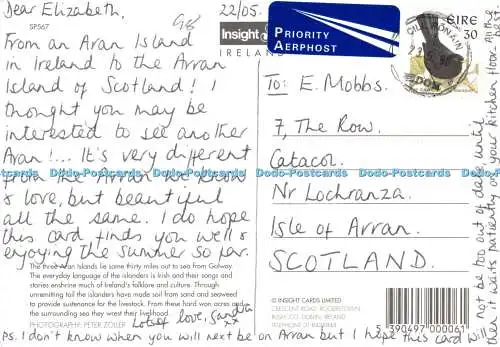 Dear Elizabeth,
22/05.
SP567
From an Aran Island
in Ireland to the Arran
Island of Scotland! I
thought you may be
interested to see another
Aran!... It's very different
from the Arran we know
& love, but beautiful
all the same. I do hope
this card finds you well &
enjoying the Summer so far.
Lots of love, Sandra
xx
PS. I don't know when you will next be on Arran but I hope this card will
not be too out of date until
it waits patiently on your kitchen floor.
Insight
IRELAND
PRIORITY
AERPHOST
ÉIRE
30
To: E. Mobbs.
7, The Row.
Catacol.
Nr Lochranza.
Isle of Arran.
SCOTLAND.
Dodo-Postcards Dodo-Postcards Dodo-Postcards Dodo-Postcards Dodo-Postcards
The three Aran Islands lie some thirty miles out to sea from Galway.
The everyday language of the islanders is Irish and their songs and
stories enshrine much of Ireland's folklore and culture. Through
unremitting toil the islanders have made soil from sand and seaweed
to provide sustenance for the livestock. From these hard won acres
the surrounding sea they wrest their livelihood.
PHOTOGRAPHY: PETER ZÖLLER
© INSIGHT CARDS LIMITED
5 390497 000061